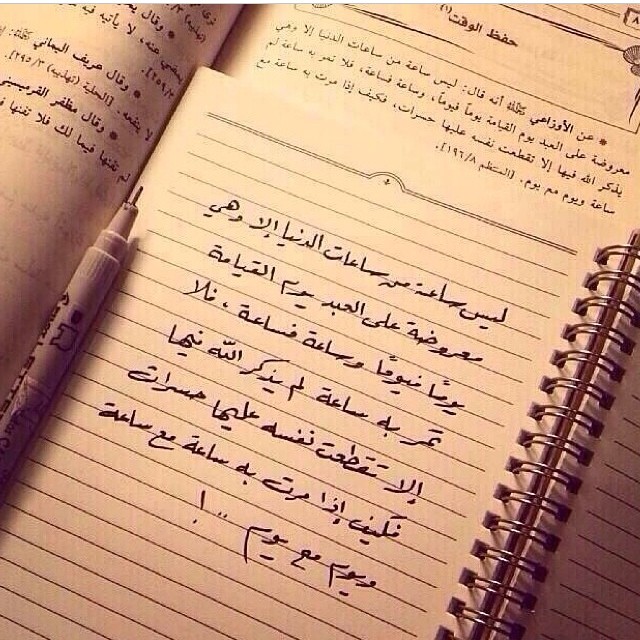 حفظ الوقت(١)
* عن الأوزاعي أنه قال: ليس ساعة من ساعات الدنيا إلا وهي
معروضة على العبد يوم القيامة يوماً فيوماً، وساعة فساعة، فلا تمر به ساعة لم
يذكر الله فيها إلا تقطعت نفسه عليها حسرات، فكيف إذا مرت به ساعة مع
ساعة ويوم مع يوم. [المنتظم ١٩٦/٨].
* وقال
يمضي عنه، لا يأتيه فيه
* وقال عريف اليماني
لا ينفعه. [الحلية (تهذيبه) ٢٩٥/٣].
* وقال مظفر القرميسيني
لم تفتها فيما لك فلا تفتها
ليس ساعة من ساعات الدنيا إلا وهي
معروضة على العبد يوم القيامة
يومًا فيومًا وساعة فساعة، فلا
تمر به ساعة لم يذكر الله فيها
إلا تقطعت نفسه عليها حسرات
فكيف إذا مرت به ساعة مع ساعة
ويوم مع يوم .. !